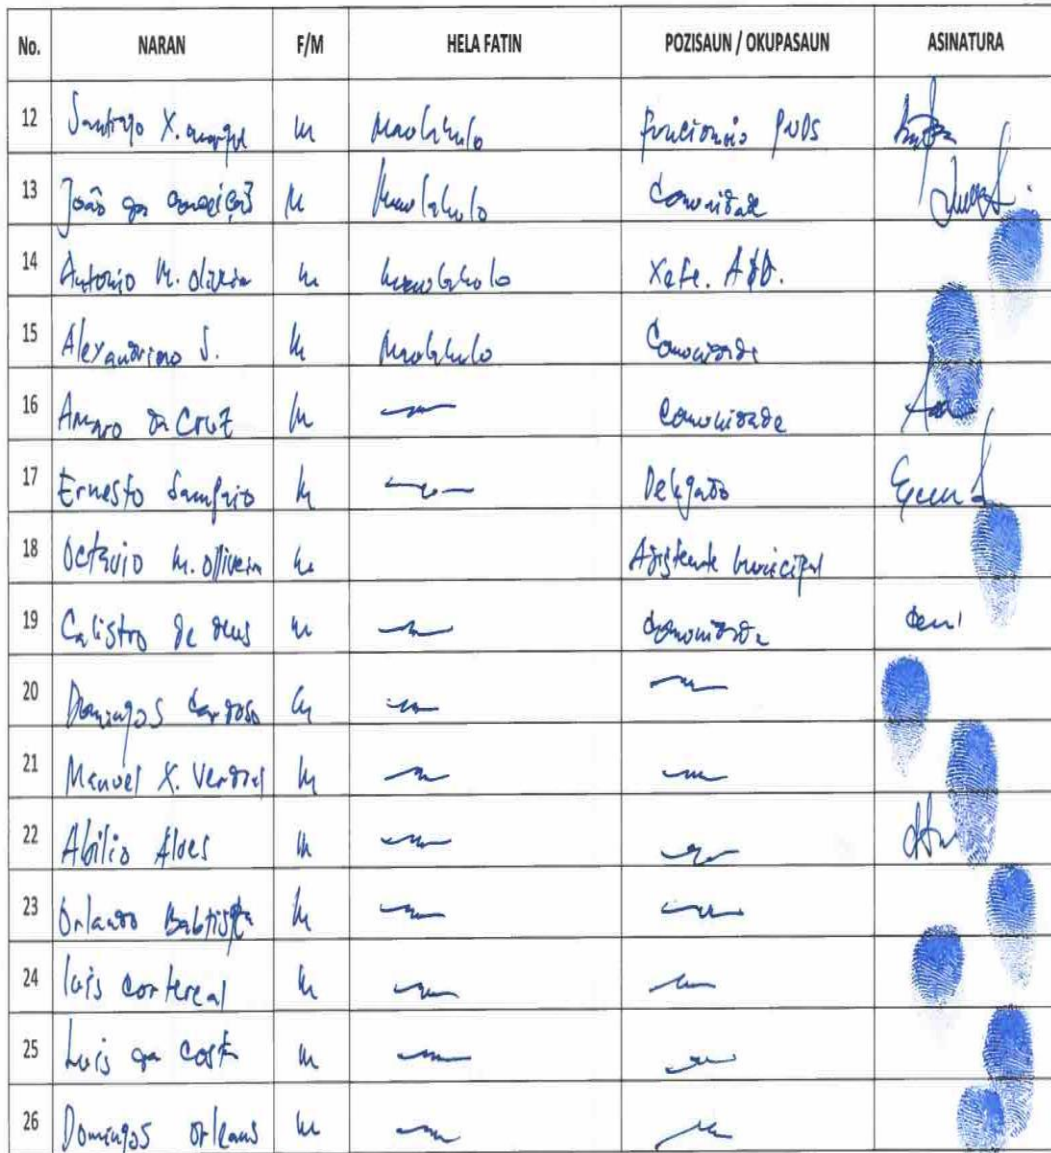 No. NARAN F/M HELA FATIN POZISAUN / OKUPASAUN ASINATURA
12 Santiago X. M Maulakulo funcionario PNDS
13 João da Conceição M Maulakulo Comunidade
14 Antonio M. Oliveira M Maulakulo Xefe. Ald.
15 Alexandrino S. M Maulakulo Comunidade
16 Amaro da Cruz M Comunidade
17 Ernesto Sampaio M Delegado
18 Octavio M. Olliveira M Asistente Municipal
19 Calistro de deus M Comunidade
20 Domingos Cardoso M
21 Manuel X. Verdial M
22 Abilio Alves M
23 Orlando Babtista M
24 luis cortereal M
25 Luis da Costa M
26 Domingos Orleans M